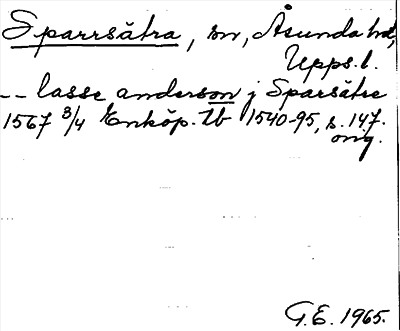 Sparrsätra, sn, Åsunda hd,
Upps. l.
-- lasse anderson j Sparsätre
1567 3/4 Enköp. tb 1540-95, s. 147.
orig.
G.E. 1965.